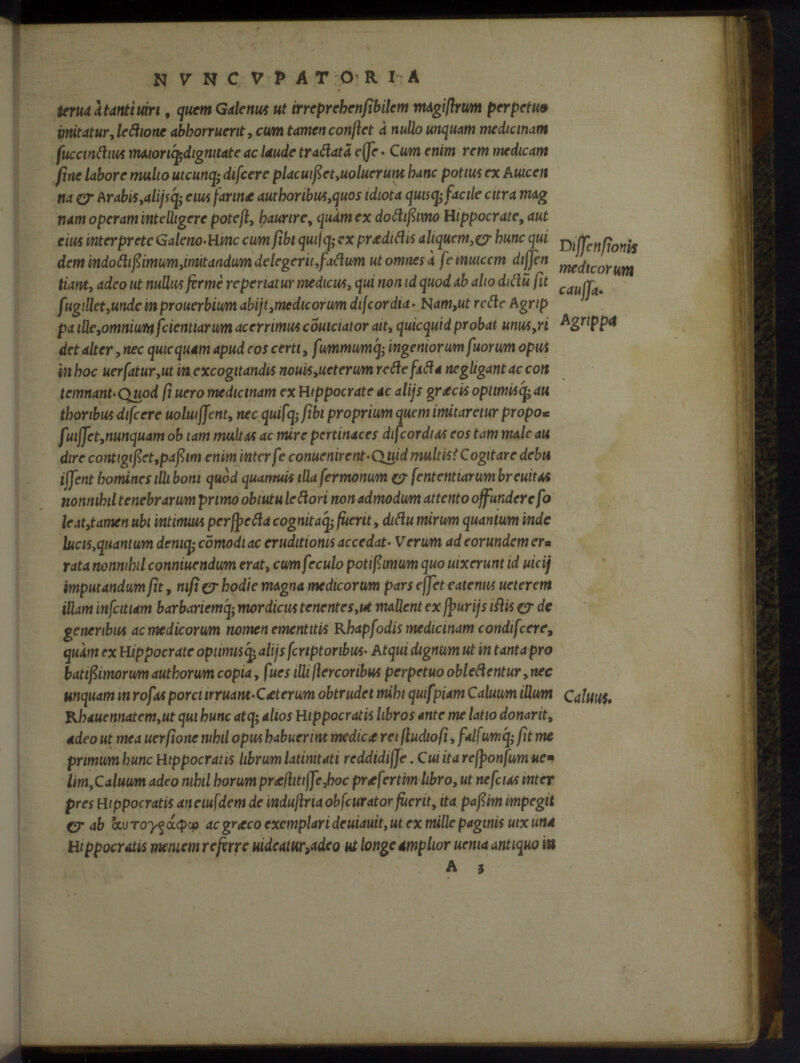 NVNCVPATORIA
terua à tanti uiri, quem Galenus ut irreprehensibilem magistrum perpetuo
imitatur, lectione abhorruerit, cum tamen constet à nullo unquam medicinam
succinctius maioriq;dignitate ac laude tractatā esse. Cum enim rem medicam
sine labore multo utcunq; discere placuisset,uoluerunt hanc potius ex Auicen
na & Arabis,alijsq; eius farinæ authoribus,quos idiota quisq; facile citra mag
nam operam intelligere potest, haurire, quàm ex doctissimo Hippocrate, aut
eius interprete Galeno. Hinc cum sibi quisq; ex prædictis aliquem,& hunc qui
dem indoctissimum,imitandum delegerit,factum ut omnes à se inuicem dissen
tiant, adeo ut nullus fermè reperiatur medicus, qui non id quod ab alio dictū sit
sugillet,unde in prouerbium abijt,medicorum discordia. Nam,ut recte Agrip
pa ille,omnium scientiarum acerrimus cōuiciator ait, quicquid probat unus,ri
det alter, nec quicquam apud eos certi, summumq; ingeniorum suorum opus
in hoc uersatur,ut in excogitandis nouis,ueterum recte facta negligant ac con
temnant. Quod si uero medicinam ex Hippocrate ac alijs græcis optimisq; au
thoribus discere uoluissent, nec quisq; sibi proprium quem imitaretur propo=
suisset,nunquam ob tam multas ac mire pertinaces discordias eos tam male au
dire contigisset,passim enim inter se conuenirent. Quid multis? Cogitare debu
issent homines illi boni quòd quamuis illa sermonum & sententiarum breuitas
nonnihil tenebrarum primo obtutu lectori non admodum attento offundere so
leat,tamen ubi intimius perspecta cognitaq; fuerit, dictu mirum quantum inde
lucis,quantum deniq; cōmodi ac eruditionis accedat. Verum ad eorundem er=
rata nonnihil conniuendum erat, cum seculo potissimum quo uixerunt id uicij
imputandum sit, nisi & hodie magna medicorum pars esset eatenus ueterem
illam inscitiam barbariemq; mordicus tenentes,ut mallent ex spurijs istis & de
generibus ac medicorum nomen ementitis Rhapsodis medicinam condiscere,
quàm ex Hippocrate optimisq; alijs scriptoribus. Atqui dignum ut in tanta pro
batissimorum authorum copia, sues illi stercoribus perpetuo oblectentur, nec
unquam in rosas porci irruant. Cæterum obtrudet mihi quispiam Caluum illum
Rhauennatem,ut qui hunc atq; alios Hippocratis libros ante me latio donarit,
adeo ut mea uersione nihil opus habuerint medicæ rei studiosi, falsumq; sit me
primum hunc Hippocratis librum latinitati reddidisse. Cui ita responsum ue=
lim,Caluum adeo nihil horum præstitisse,hoc præsertim libro, ut nescias inter
pres Hippocratis an eiusdem de industria obscurator fuerit, ita passim impegit
& ab αὐτογράφῳ ac græco exemplari deuiauit, ut ex mille paginis uix una
Hippocratis mentem referre uideatur,adeo ut longe amplior uenia antiquo in
A 3
Dissensionis
medicorum
caussa.
Agrippa
Caluus.